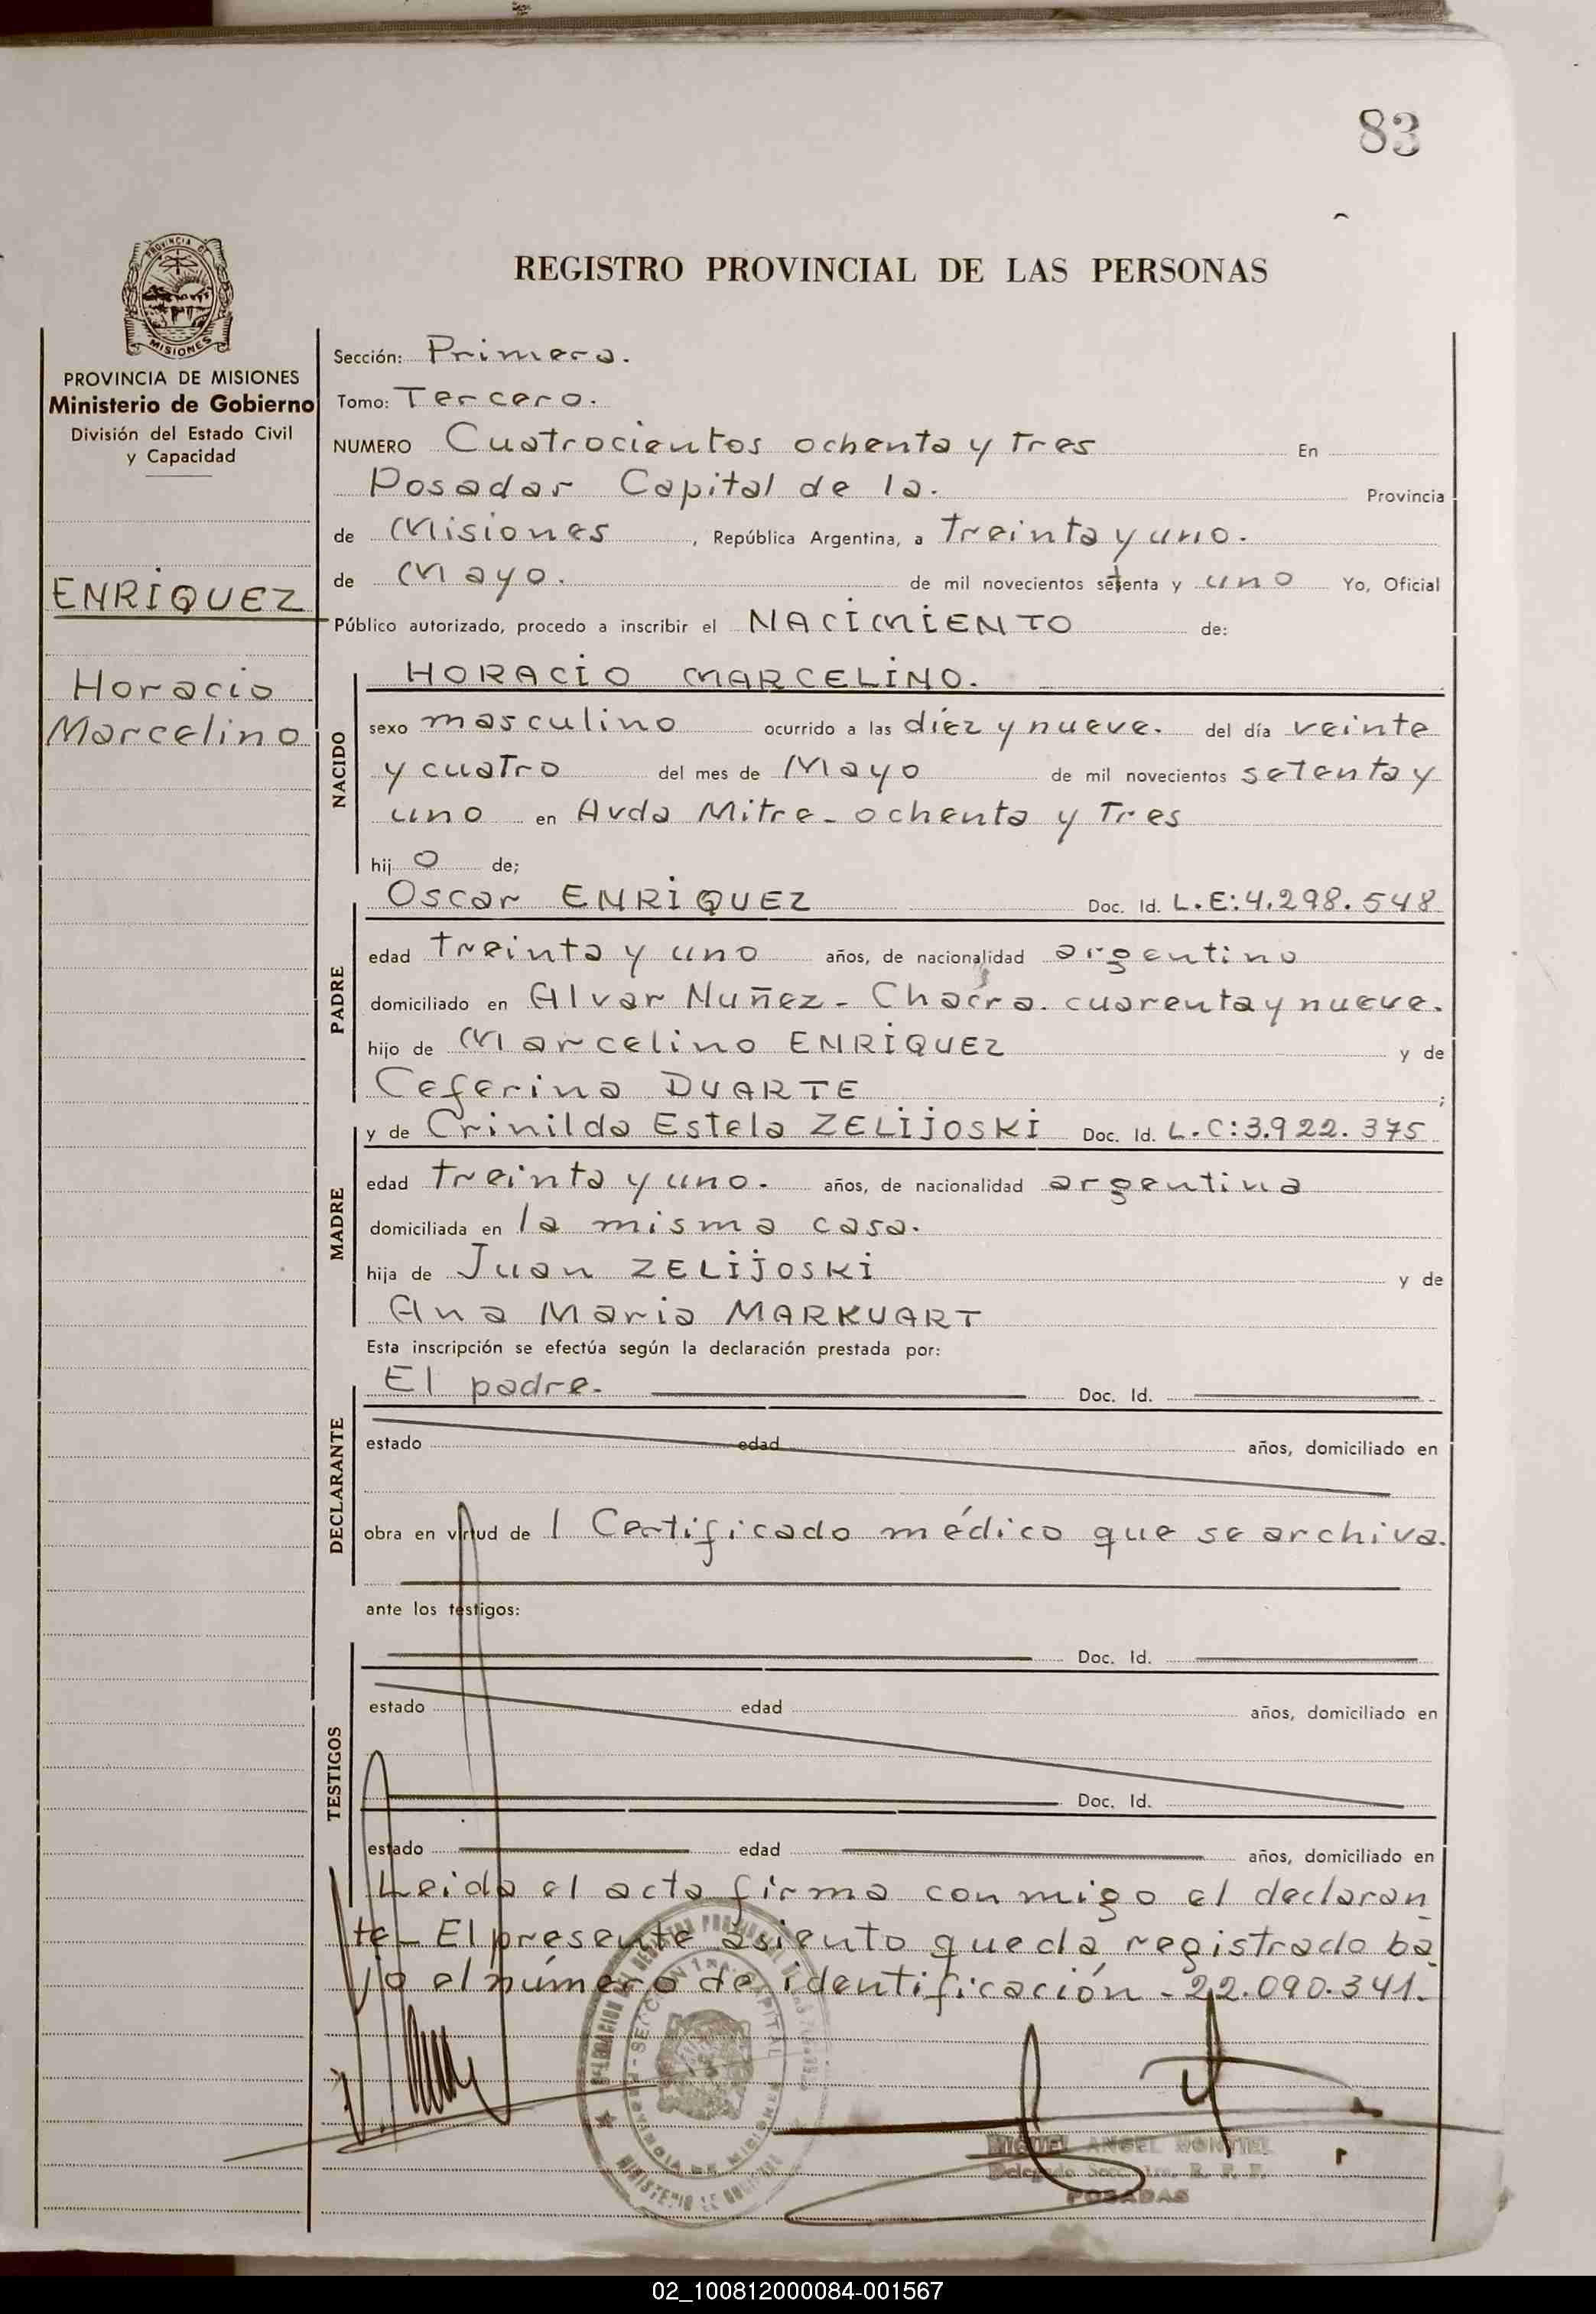 83
REGISTRO PROVINCIAL DE LAS PERSONAS
PROVINCIA DE
MISIONES
PROVINCIA DE MISIONES
Ministerio de Gobierno
División del Estado Civil
y Capacidad
ENRIQUEZ
Horacio
Marcelino
Sección: Primera.
Tomo: Tercero.
NUMERO Cuatrocientos ochenta y tres En
Posadas Capital de la. Provincia
de Misiones, República Argentina, a treinta y uno.
de Mayo. de mil novecientos setenta y uno Yo, Oficial
Público autorizado, procedo a inscribir el NACIMIENTO de:
NACIDO
HORACIO MARCELINO.
sexo masculino ocurrido a las diez y nueve. del día veinte
y cuatro del mes de Mayo de mil novecientos setenta y
uno en Avda Mitre - ochenta y Tres
hij o de;
PADRE
Oscar ENRIQUEZ Doc. Id. L.E:4.298.548
edad treinta y uno años, de nacionalidad argentino
domiciliado en Alvar Nuñez - Chacra. cuarenta y nueve.
hijo de Marcelino ENRIQUEZ y de
Ceferina DUARTE ;
MADRE
y de Crinilda Estela ZELIJOSKI Doc. Id. L.C:3.922.375
edad treinta y uno. años, de nacionalidad argentina
domiciliada en la misma casa.
hija de Juan ZELIJOSKI y de
Ana Maria MARKUART
Esta inscripción se efectúa según la declaración prestada por:
DECLARANTE
El padre. Doc. Id.
estado edad años, domiciliado en
obra en virtud de 1 Certificado médico que se archiva.
ante los testigos:
TESTIGOS
Doc. Id.
estado edad años, domiciliado en
Doc. Id.
estado edad años, domiciliado en
Leida el acta firma conmigo el declaran
te - El presente asiento queda registrado ba
jo el número de identificación - 22.090.341.
MIGUEL ANGEL MONTIEL
POSADAS
02_100812000084-001567